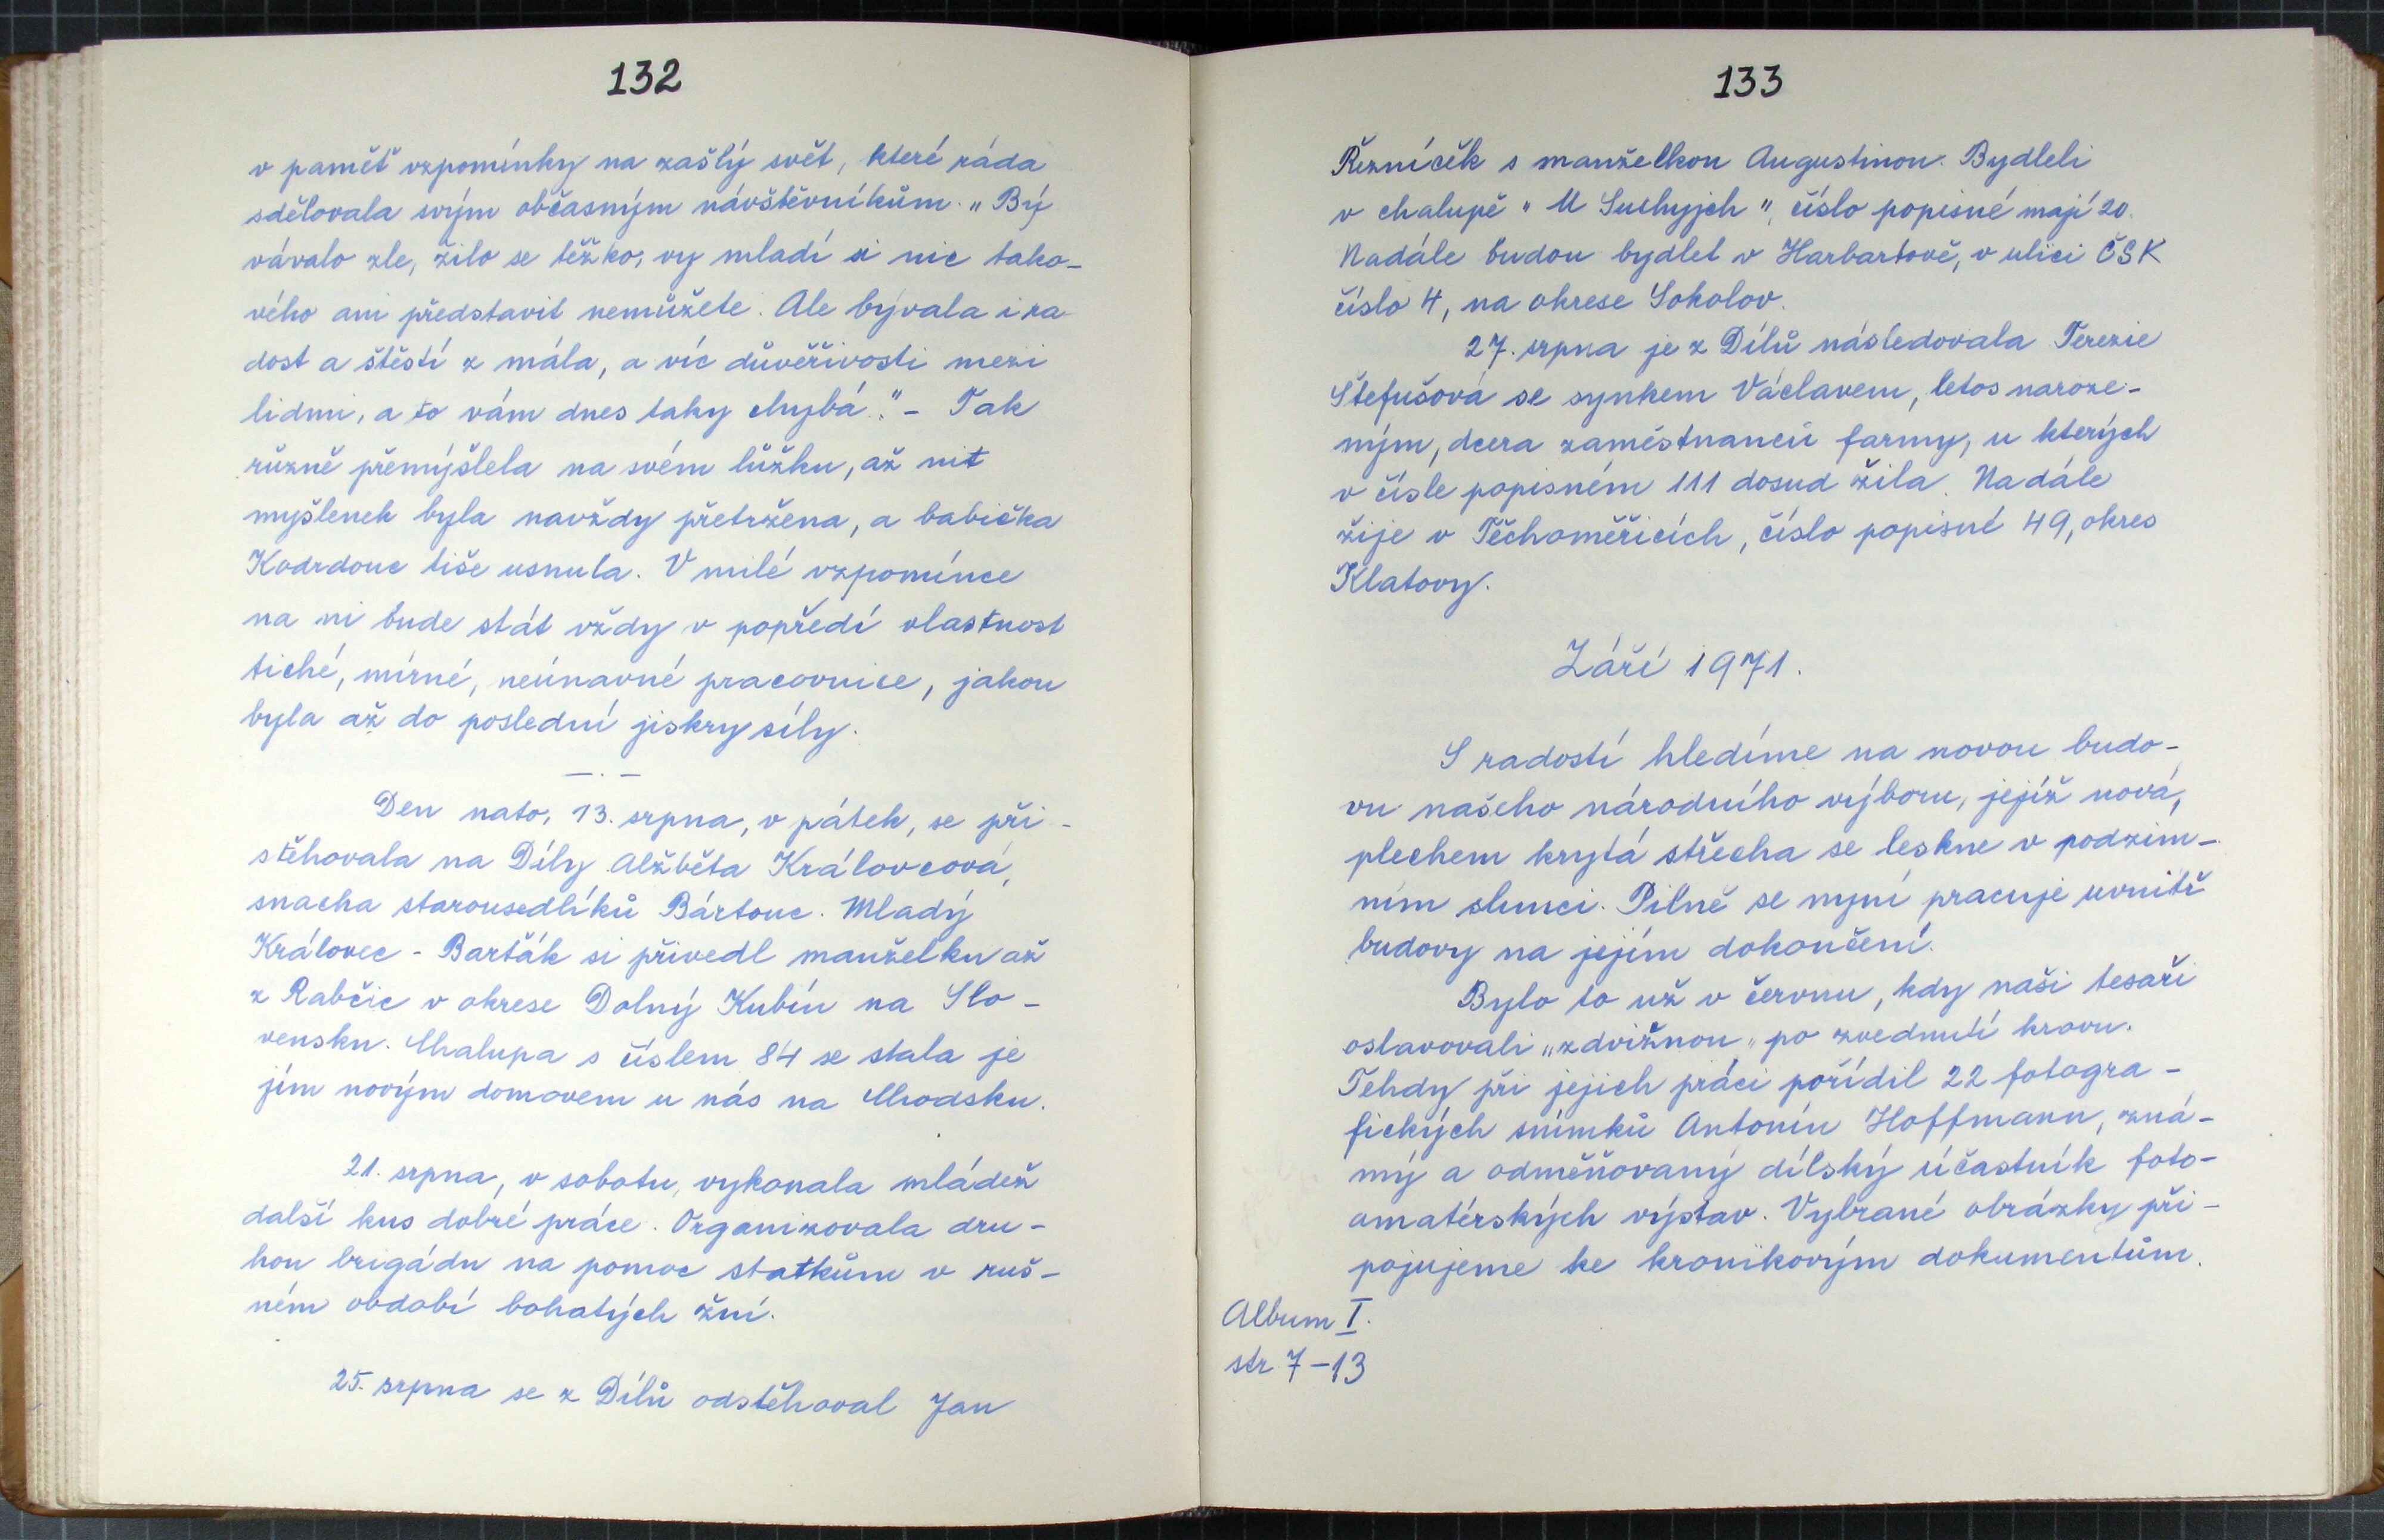 132
v paměť vzpomínky na zašlý svět, které ráda
sdělovala svým občasným návštěvníkům. „Bý
vávalo zle, žilo se těžko, vy mladí si nic tako-
vého ani představit nemůžete. Ale bývala i ra
dost a štěstí z mála, a víc důvěřivosti mezi
lidmi, a to vám dnes taky chybá." - Tak
různě přemýšlela na svém lůžku, až nit
myšlenek byla navždy přetržena, a babička
Kodrdouc tiše usnula. V milé vzpomínce
na ni bude stát vždy v popředí vlastnost
tiché, mírné, neúnavné pracovnice, jakou
byla až do poslední jiskry síly.
—.—
Den nato, 13. srpna, v pátek, se při-
stěhovala na Díly Alžběta Královcová,
snacha starousedlíků Bártouc. Mladý
Královec - Barták si přivedl manželku až
z Rabčic v okrese Dolný Kubín na Slo-
vensku. Chalupa s číslem 84 se stala je
jím novým domovem u nás na Chodsku.
21. srpna, v sobotu, vykonala mládež
další kus dobré práce. Organizovala dru-
hou brigádu na pomoc statkům v ruš-
ném období bohatých žní.
25. srpna se z Dílů odstěhoval Jan
133
Řezníček s manželkou Augustinou. Bydleli
v chalupě " U Suchyjch ", číslo popisné mají 20.
Nadále budou bydlet v Harbartově, v ulici ČSK
číslo 4, na okrese Sokolov.
27. srpna je z Dílů následovala Terezie
Štefušová se synkem Václavem, letos naroze-
ným, dcera zaměstnanců farmy, u kterých
v čísle popisném 111 dosud žila. Nadále
žije v Těchoměřicích, číslo popisné 49, okres
Klatovy.
Září 1971.
S radostí hledíme na novou budo-
vu našeho národního výboru, jejíž nová,
plechem krytá střecha se leskne v podzim-
ním slunci. Pilně se nyní pracuje uvnitř
budovy na jejím dokončení.
Bylo to už v červnu, kdy naši tesaři
oslavovali „zdvižnou„ po zvednutí krovu.
Tehdy při jejich práci pořídil 22 fotogra-
fických snímků Antonín Hoffmann, zná-
mý a odměňovaný dílský účastník foto-
amatérských výstav. Vybrané obrázky při-
pojujeme ke kronikovým dokumentům.
Album I.
str 7-13